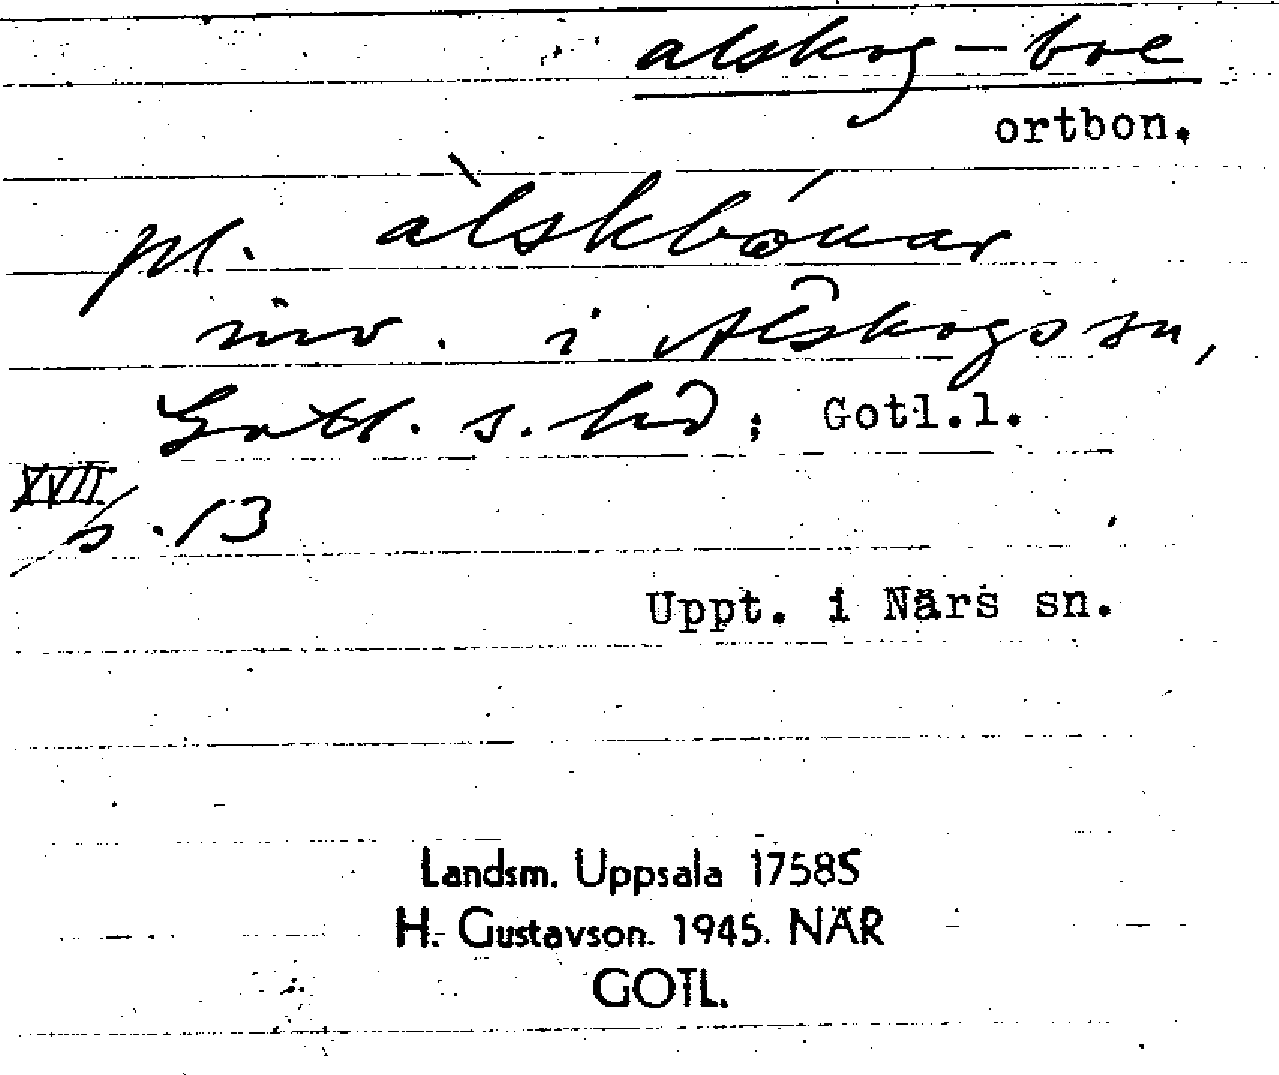 alskog-boe
ortbon.
pl. àlskbónar
inv. i Alskogs sn,
Gotl. s. hd; Gotl.l.
XVII
s. 13
Uppt. i Närs sn.
Landsm. Uppsala 1758S
H. Gustavson. 1945. NÄR
GOTL.